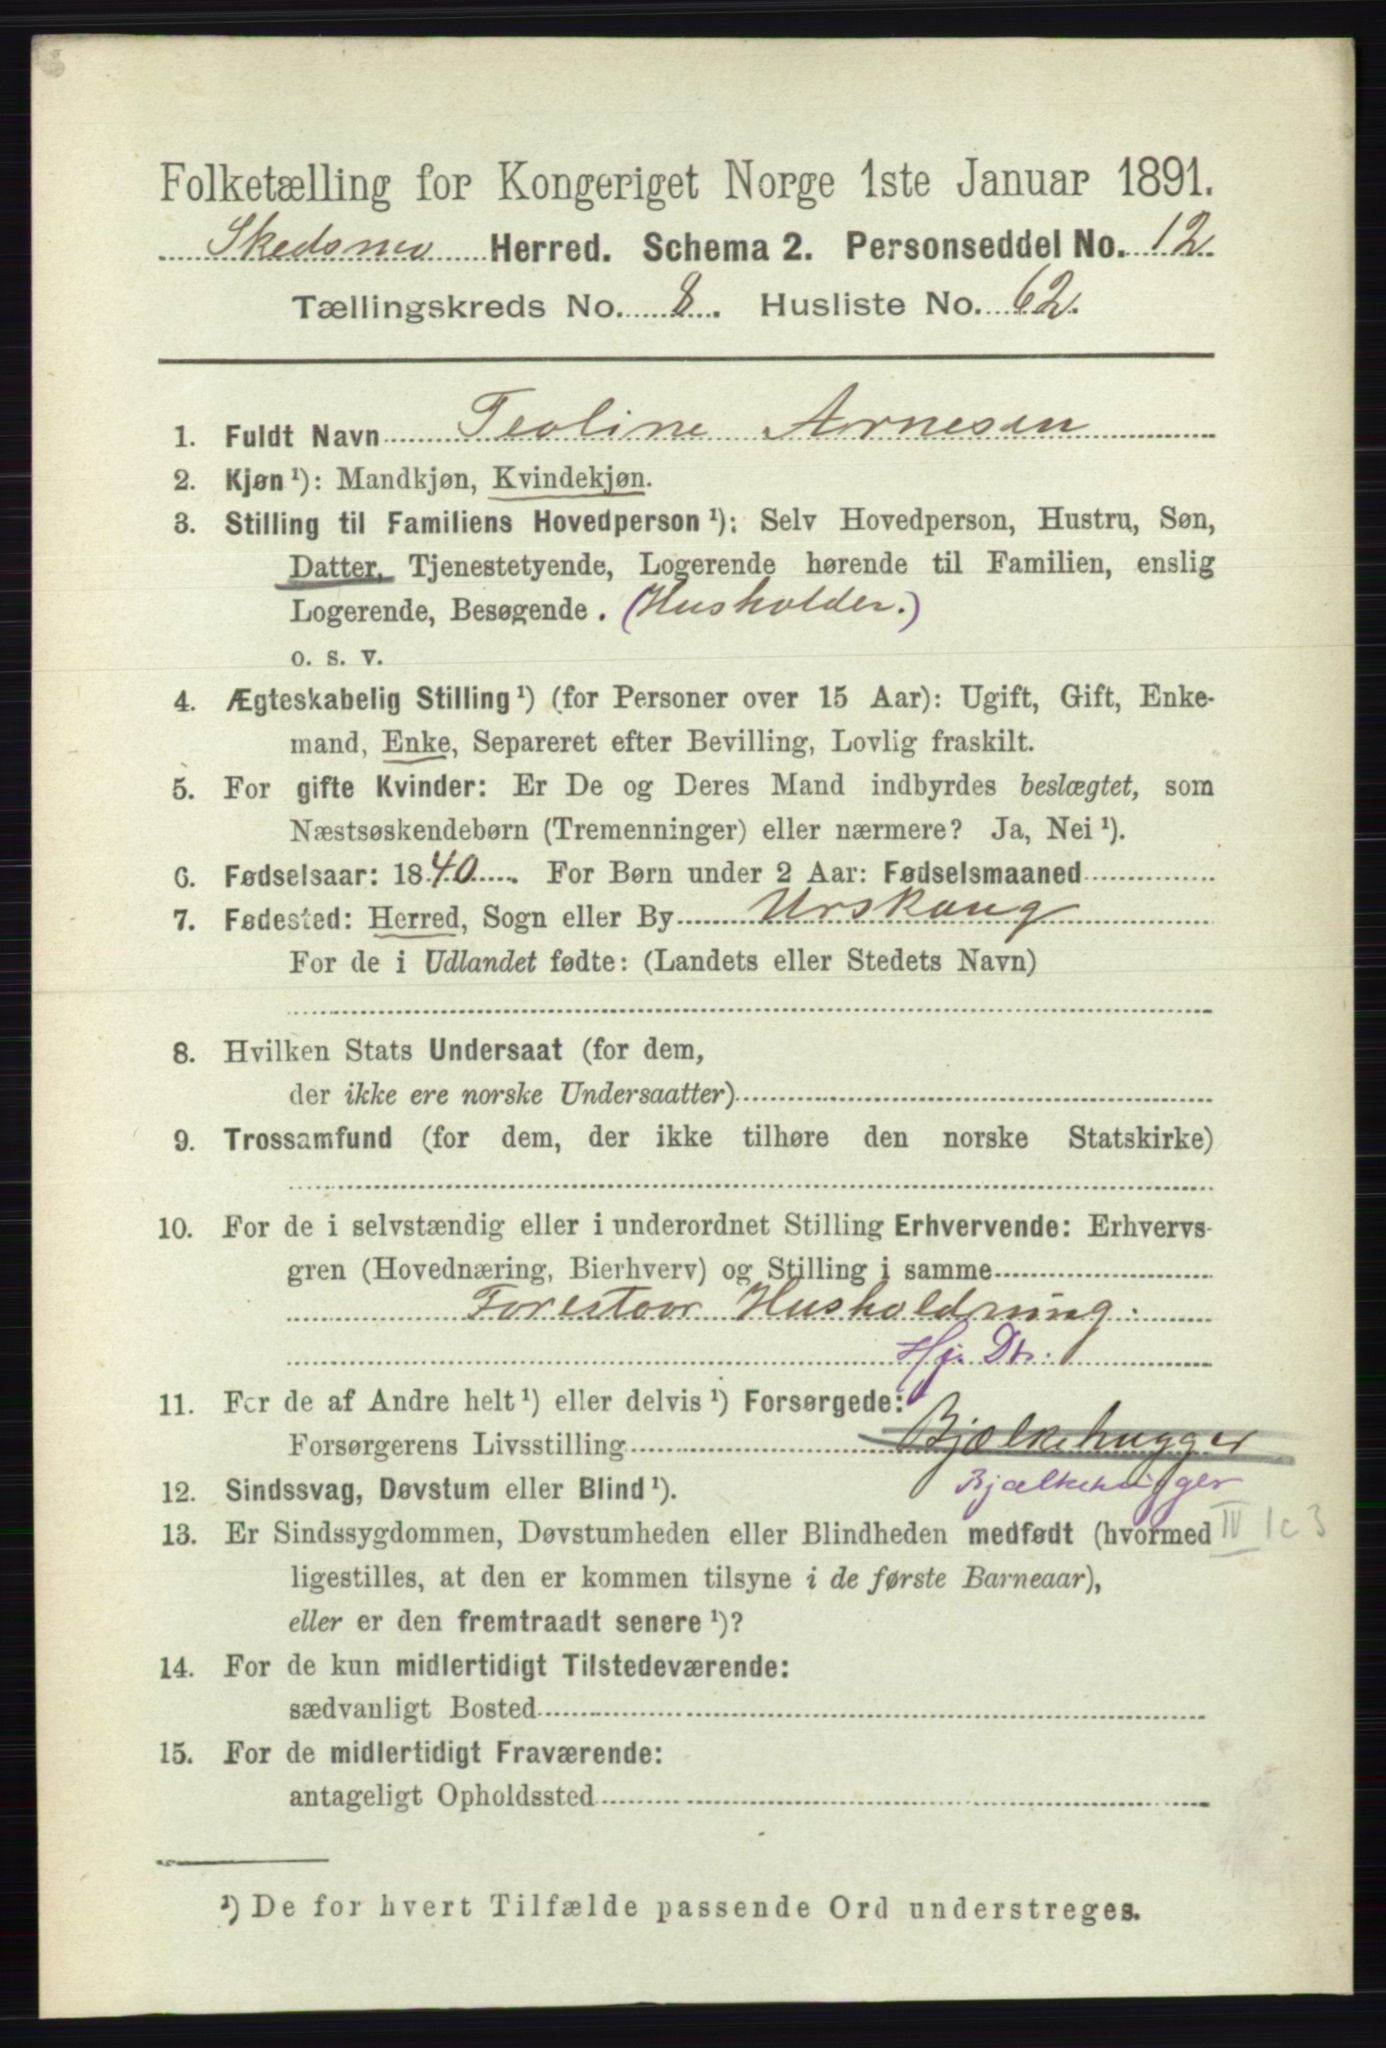 Folketælling for Kongeriget Norge 1ste Januar 1891.
Skedsmo Herred. Schema 2. Personseddel No. 12.
Tællingskreds No. 8. Husliste No. 62.
1. Fuldt Navn Teoline Arnesen
2. Kjøn ¹): Mandkjøn, Kvindekjøn.
3. Stilling til Familiens Hovedperson ¹): Selv Hovedperson, Hustru, Søn,
Datter, Tjenestetyende, Logerende hørende til Familien, enslig
Logerende, Besøgende. (Husholder.)
o. s. v.
4. Ægteskabelig Stilling ¹) (for Personer over 15 Aar): Ugift, Gift, Enke-
mand, Enke, Separeret efter Bevilling, Lovlig fraskilt.
5. For gifte Kvinder: Er De og Deres Mand indbyrdes beslægtet, som
Næstsøskendebørn (Tremenninger) eller nærmere? Ja, Nei ¹).
6. Fødselsaar: 1840. For Børn under 2 Aar: Fødselsmaaned
7. Fødested: Herred, Sogn eller By Urskoug
For de i Udlandet fødte: (Landets eller Stedets Navn)
8. Hvilken Stats Undersaat (for dem,
der ikke ere norske Undersaatter)
9. Trossamfund (for dem, der ikke tilhøre den norske Statskirke)
10. For de i selvstændig eller i underordnet Stilling Erhvervende: Erhvervs-
gren (Hovednæring, Bierhverv) og Stilling i samme
Forestaar Husholdning.
Hj. Dtr.
11. For de af Andre helt ¹) eller delvis ¹) Forsørgede:
Forsørgerens Livsstilling Bjælkehugger
12. Sindssvag, Døvstum eller Blind ¹). Bjælkehugger
13. Er Sindssygdommen, Døvstumheden eller Blindheden medfødt (hvormed IV 1c 3
ligestilles, at den er kommen tilsyne i de første Barneaar),
eller er den fremtraadt senere ¹)?
14. For de kun midlertidigt Tilstedeværende:
sædvanligt Bosted
15. For de midlertidigt Fraværende:
antageligt Opholdssted
¹) De for hvert Tilfælde passende Ord understreges.